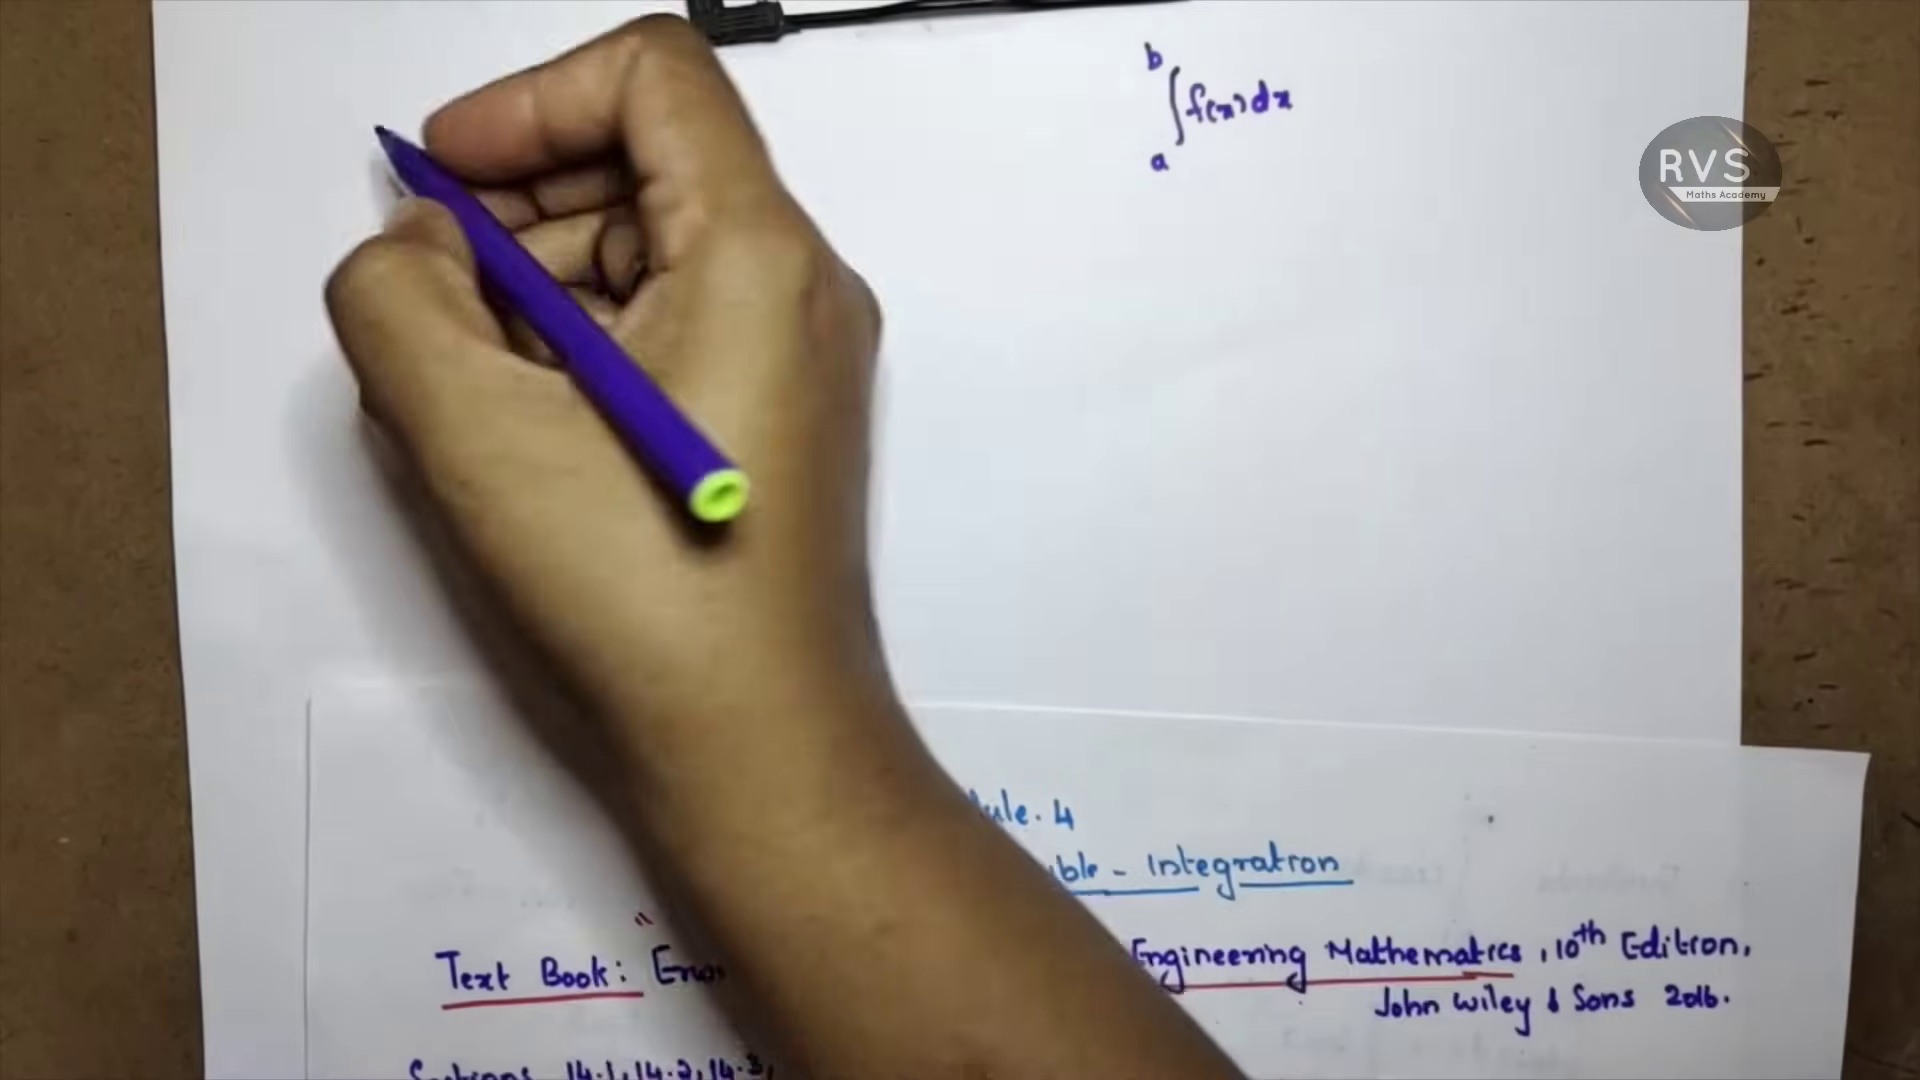 b
∫f(x)dx
a
RVS
Maths Academy
4
Integration
Text Book: Engineering Mathematics, 10th Edition,
John Wiley & Sons 2016.
14.1, 14.2, 14.3,